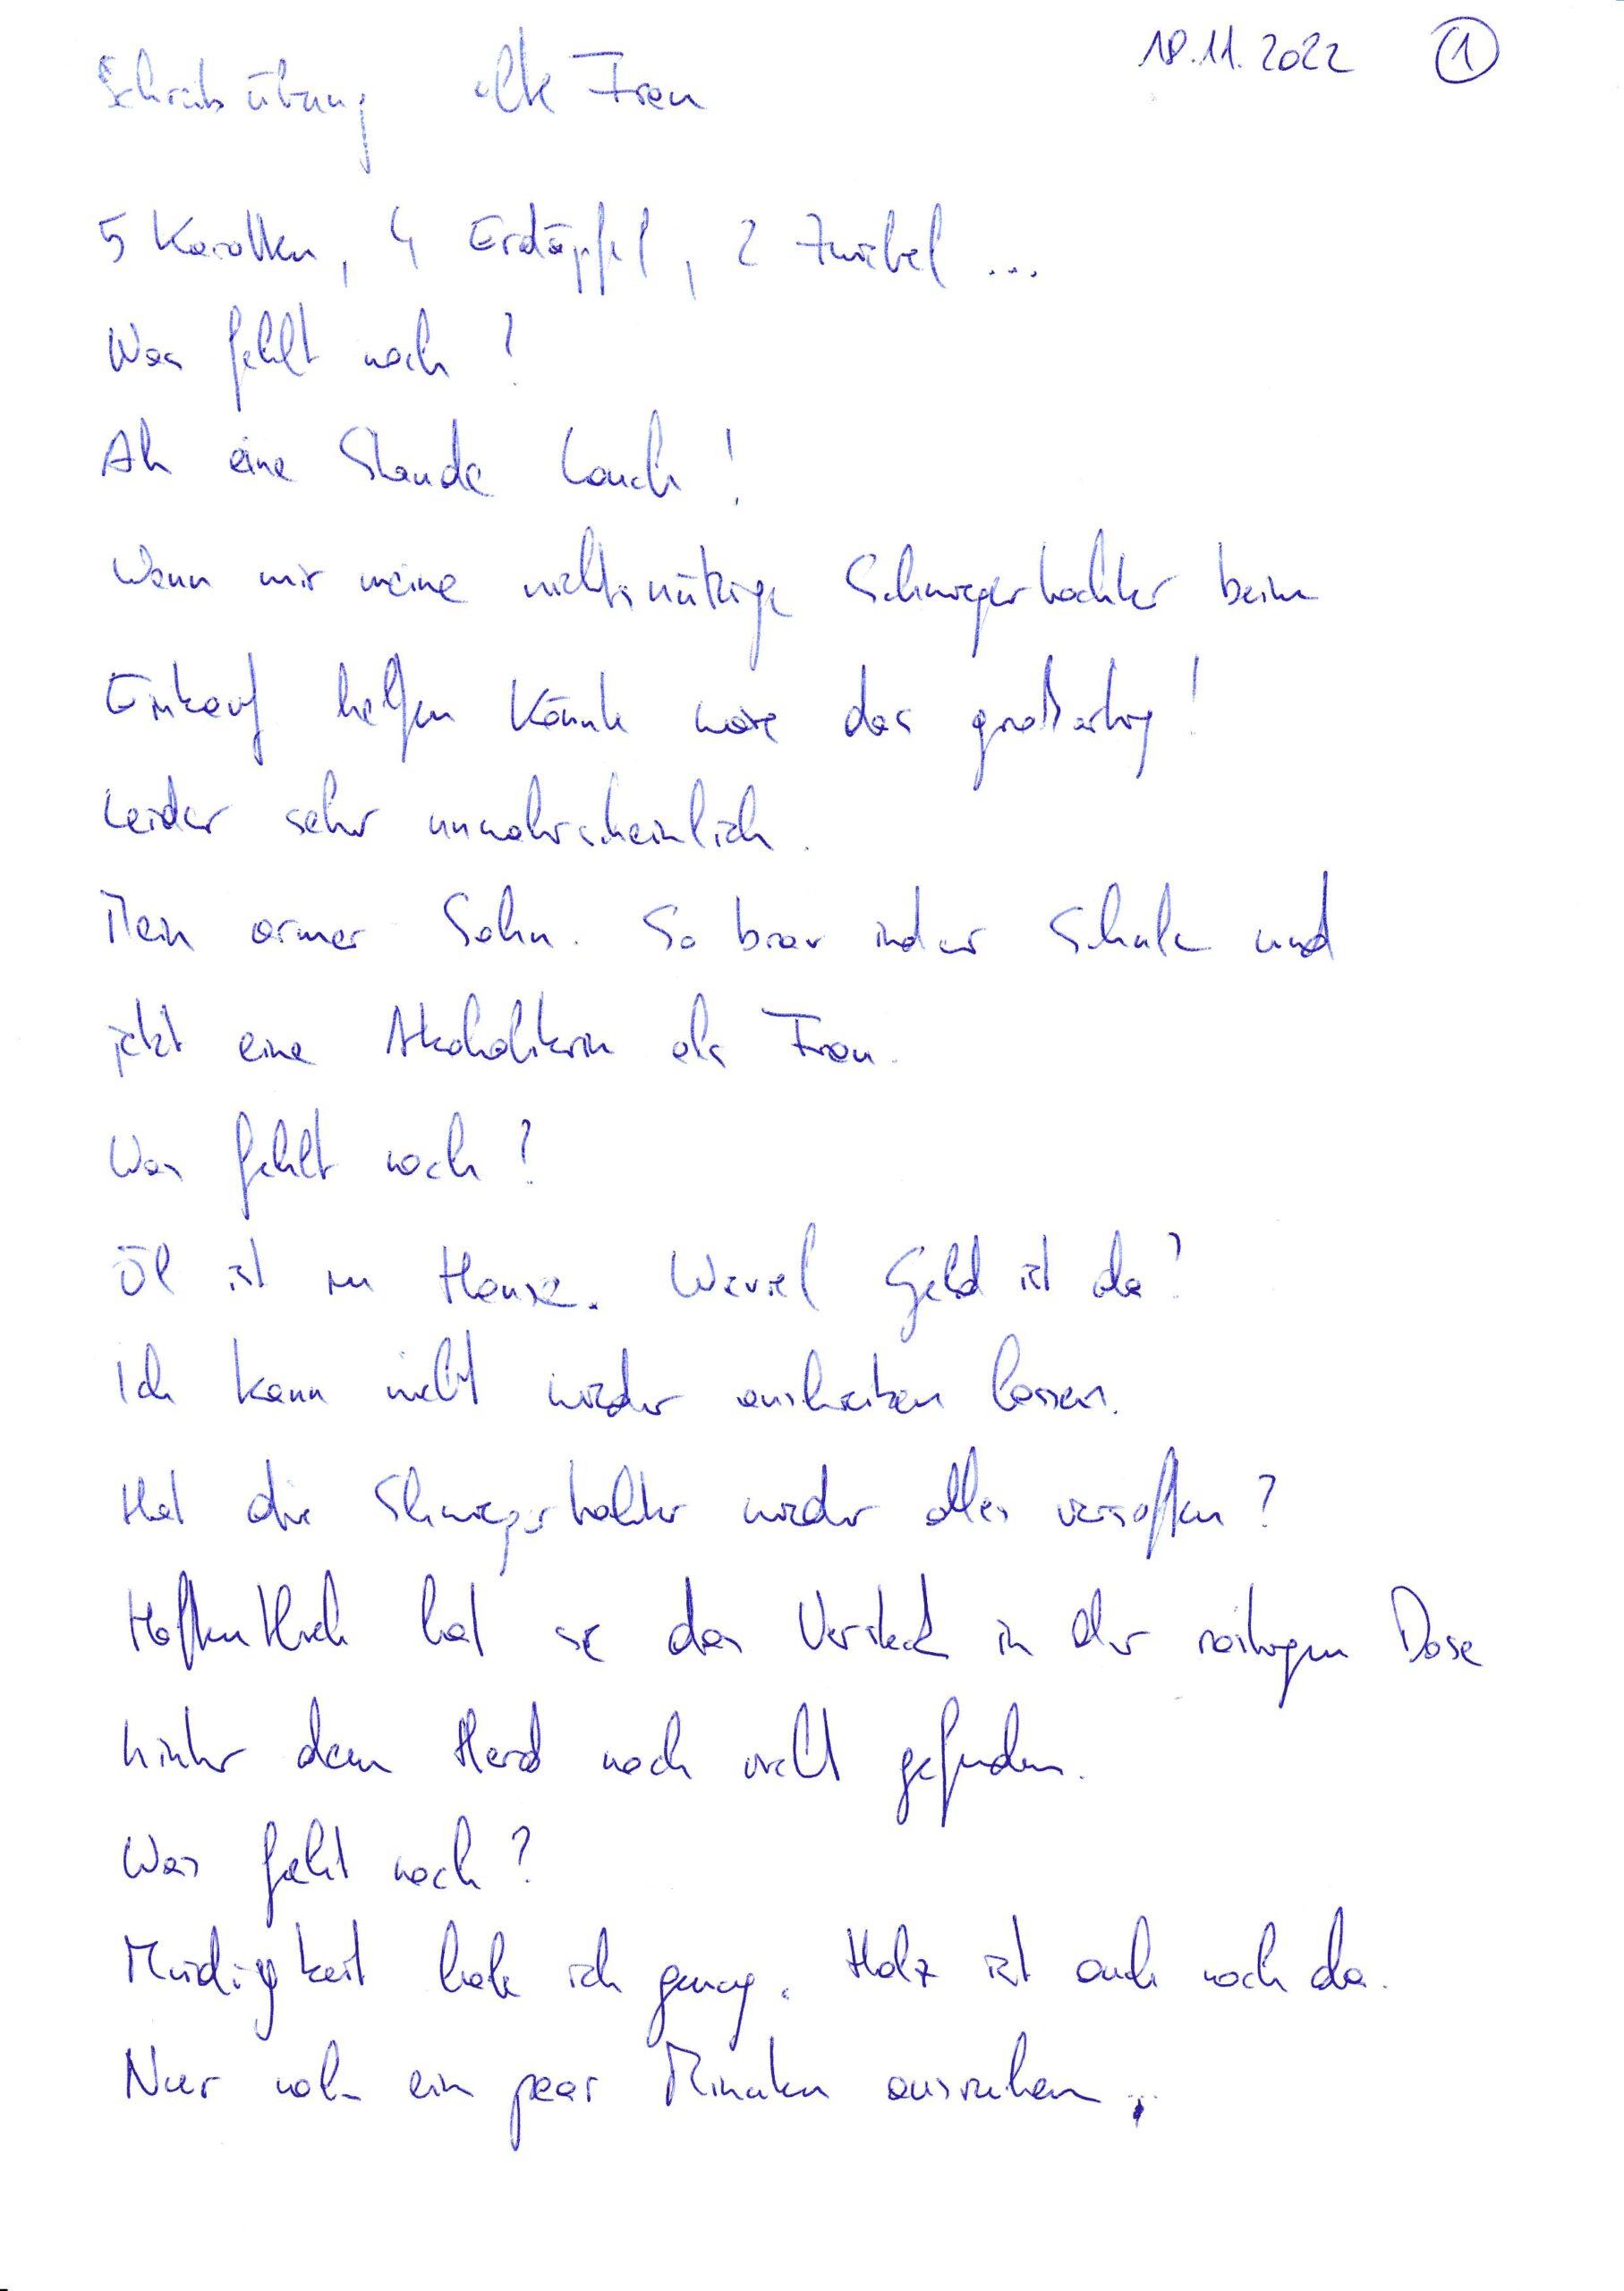 18.11.2022 1
Schreibübung alte Frau
5 Karotten, 4 Erdäpfel, 2 Zwiebel ...
Was fehlt noch?
Ah eine Staude Lauch!
Wenn mir meine nichtsnützige Schwiegertochter beim
Einkauf helfen könnte wäre das großartig!
Leider sehr unwahrscheinlich.
Mein armer Sohn. So brav in der Schule und
jetzt eine Alkoholikerin als Frau.
Was fehlt noch?
Öl ist zu Hause. Wieviel Geld ist da?
Ich kann nicht wieder anschreiben lassen.
Hat die Schwiegertochter wieder alles versoffen?
Hoffentlich hat sie das Versteck in der rostigen Dose
hinter dem Herd noch nicht gefunden.
Was fehlt noch?
Müdigkeit habe ich genug. Holz ist auch noch da.
Nur noch ein paar Minuten ausruhen.